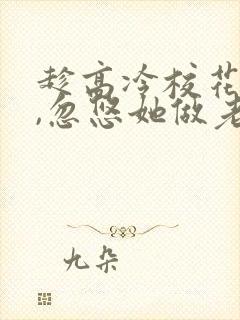 趁高冷校花
,忽悠她做老
九朵